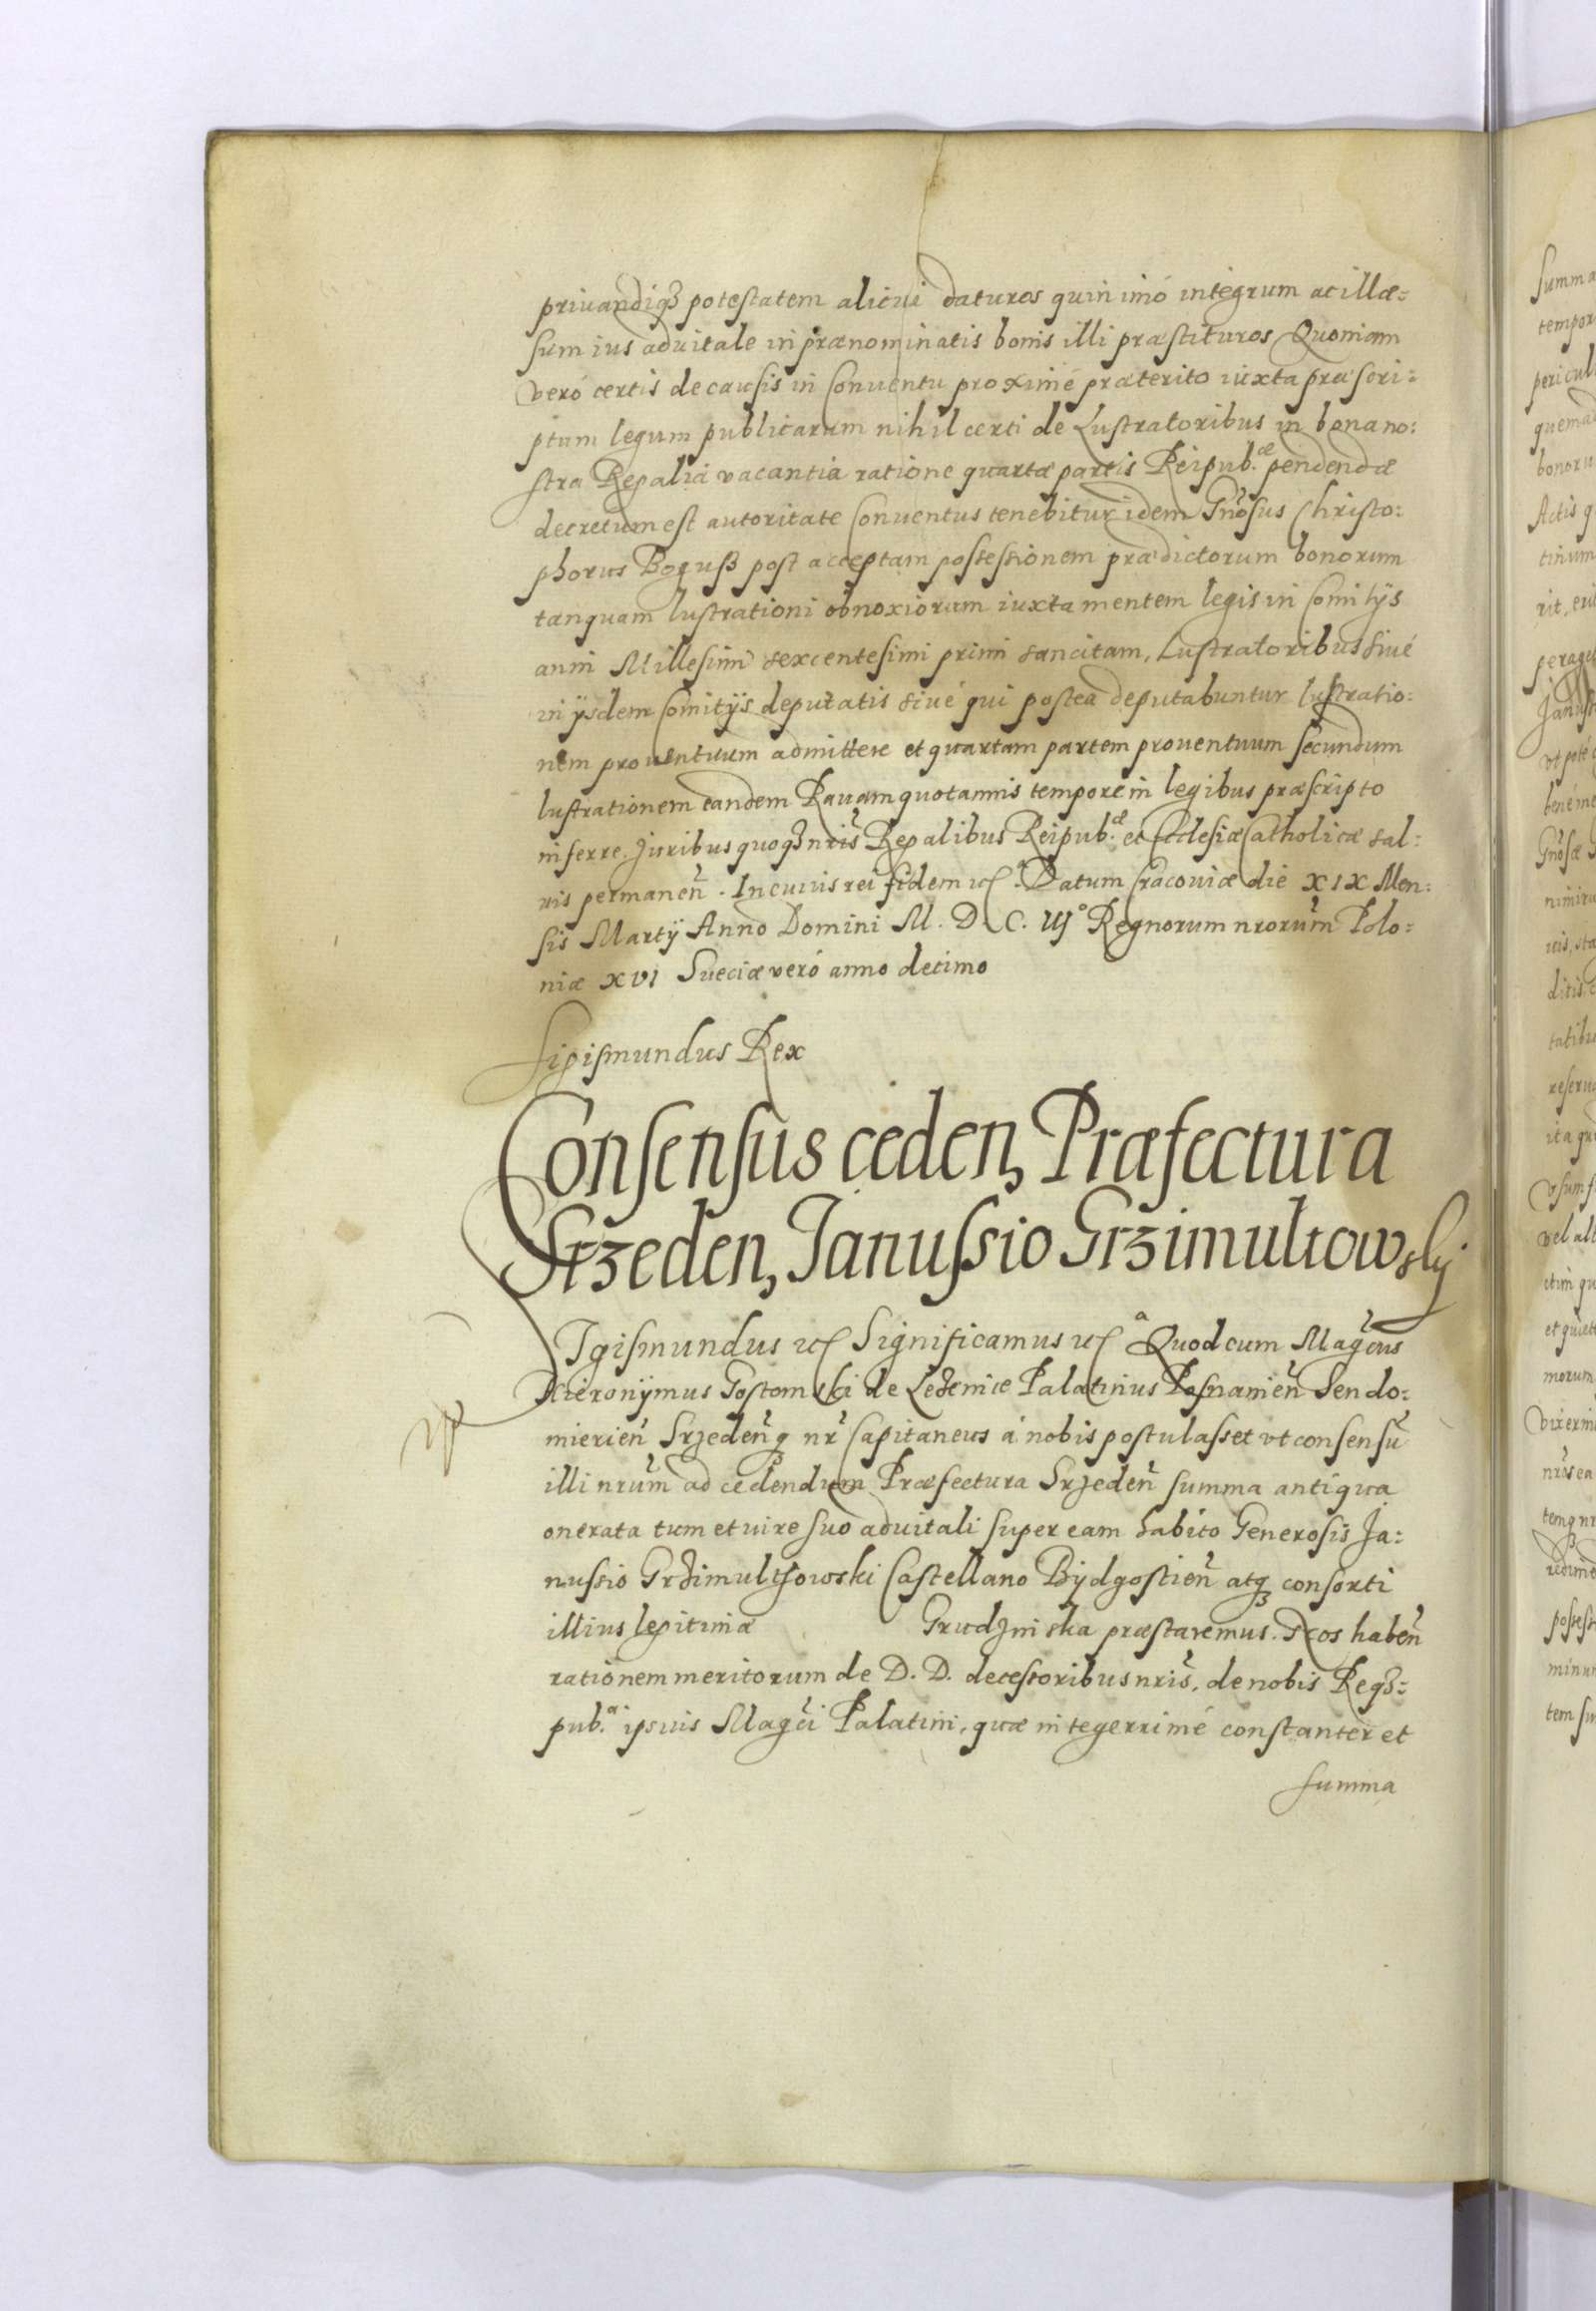 priuandiq3 potestatem alicui daturos quin imó integrum ac illæ=
sum ius aduitale in prænominatis bonis illi præstituros Quoniam
veró certis de causis in Conuentu proximé præterito iuxta præscri=
ptum legum publicarum nihil certi de Lustratoribus in bona no:
stra Regalia vacantia ratione quartæ partis Reipub.æ pendendæ
decretum est autoritate Conuentus tenebitur idem Gnosus Christo:
phorus Boguss post acceptam possessionem prædictorum bonorum
tanquam lustrationi obnoxiorum iuxta mentem legis in Comitijs
anni Millesimi sexcentesimi primi sancitam, Lustratoribus siué
in ijsdem Comitijs deputatis siué qui postea deputabuntur lustratio:
nem prouentuum admittere et quartam partem prouentuum secundum
lustrationem eandem Rauam quotannis tempore in legibus præscripto
inferre. Juribus quoq3 nris Regalibus Reipub.æ et Ecclesiæ Catholicæ sal:
uis permanen. In cuius rei fidem etc.a Datum Cracouiæ die XIX Men:
sis Martij Anno Domini M. D. C. IIIo Regnorum nrorum Polo:
niæ XVI Sueciæ veró anno decimo
Sigismundus Rex
Consensus ceden, Præfectura
Srzeden, Janussio Grzimultowskj
Sigismundus etc Significamus etc a Quod cum Magcus
Hieronymus Gostomski de Ledenice Palatinus Posnanien Sendo:
mierien Srzeden q nr Capitaneus á nobis postulasset vt consensu
illi nrum ad cedendum Præfectura Srzeden summa antiqua
onerata tum et iure suo aduitali super eam habito Generosis Ja:
nussio Grzimulthowski Castellano Bydgostien atq3 consorti
illius legitimæ Grudzinska præstaremus. Nos haben
rationem meritorum de D. D. decessoribus nris, de nobis Req3:
pub.a ipsius Magci Palatini, quæ integerrimé constanter et
summa